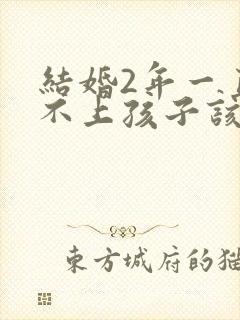 結婚2年一
不上孩子該
東方城府的猫